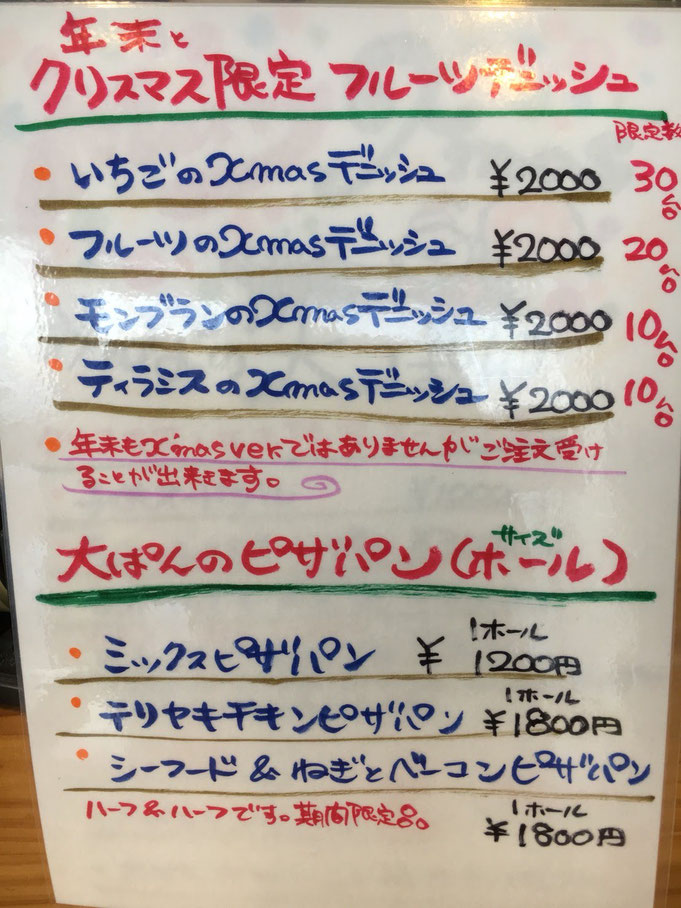 年末と
クリスマス限定 フルーツデニッシュ
限定数
• いちごのXmasデニッシュ ¥2000 30台
• フルーツのXmasデニッシュ ¥2000 20台
• モンブランのXmasデニッシュ ¥2000 10台
• ティラミスのXmasデニッシュ ¥2000 10台
• 年末もX'mas verではありませんがご注文受け
ることが出来ます。
サイズ
大ぱんのピザパン(ホール)
1ホール
• ミックスピザパン ¥ 1200円
1ホール
• テリヤキチキンピザパン ¥1800円
• シーフード & ねぎとベーコンピザパン
ハーフ&ハーフです。期間限定品。
1ホール
¥1800円